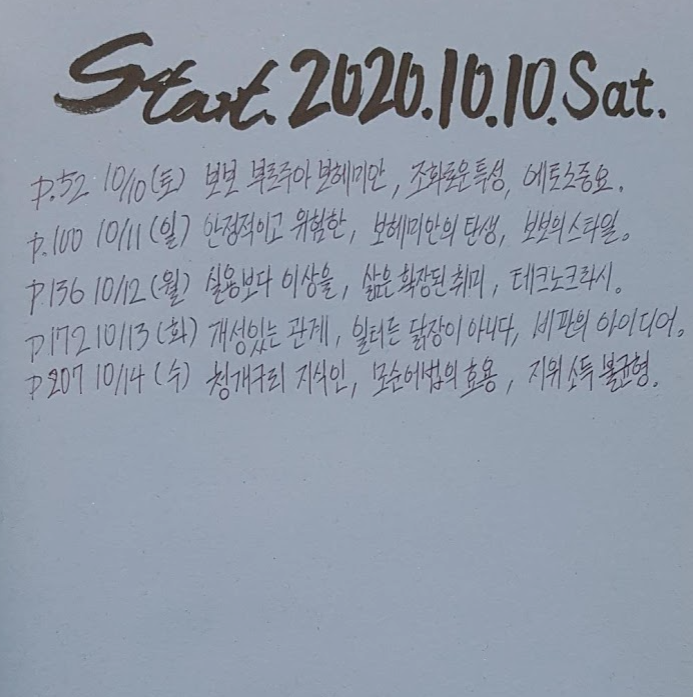 Start. 2020.10.10. Sat.
p.52 10/10 (토) 보보 부르주아 보헤미안, 조화로운 특성, 에토스 중요.
p.100 10/11 (일) 안정적이고 위험한, 보헤미안의 탄생, 보보의 스타일。
p136 10/12 (월) 실용보다 이상을, 삶은 확장된 취미, 테크노크라시。
p172 10/13 (화) 개성있는 관계, 일터는 닭장이 아니다, 비판의 아이디어。
p207 10/14 (수) 청개구리 지식인, 모순어법의 효용, 지위 소득 불균형。